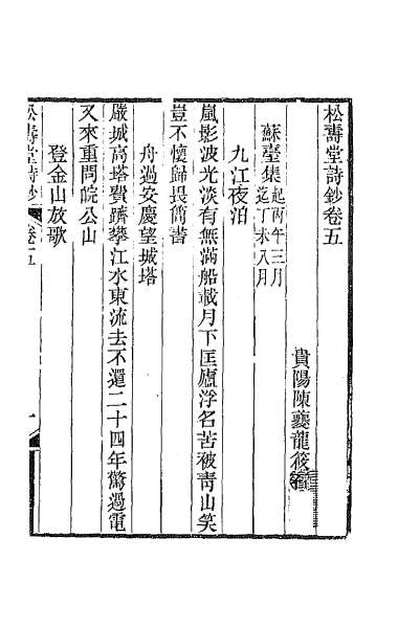 松壽堂詩鈔卷五
貴陽陳夔龍筱石
蘇臺集起丙午三月迄丁未八月
九江夜泊
嵐影波光淡有無滿船載月下匡廬浮名苦被靑山笑
豈不懷歸畏簡書
舟過安慶望城塔
嚴城高塔費躋攀江水東流去不還二十四年驚過電
又來重問皖公山
登金山放歌
松壽堂詩鈔 卷五 一